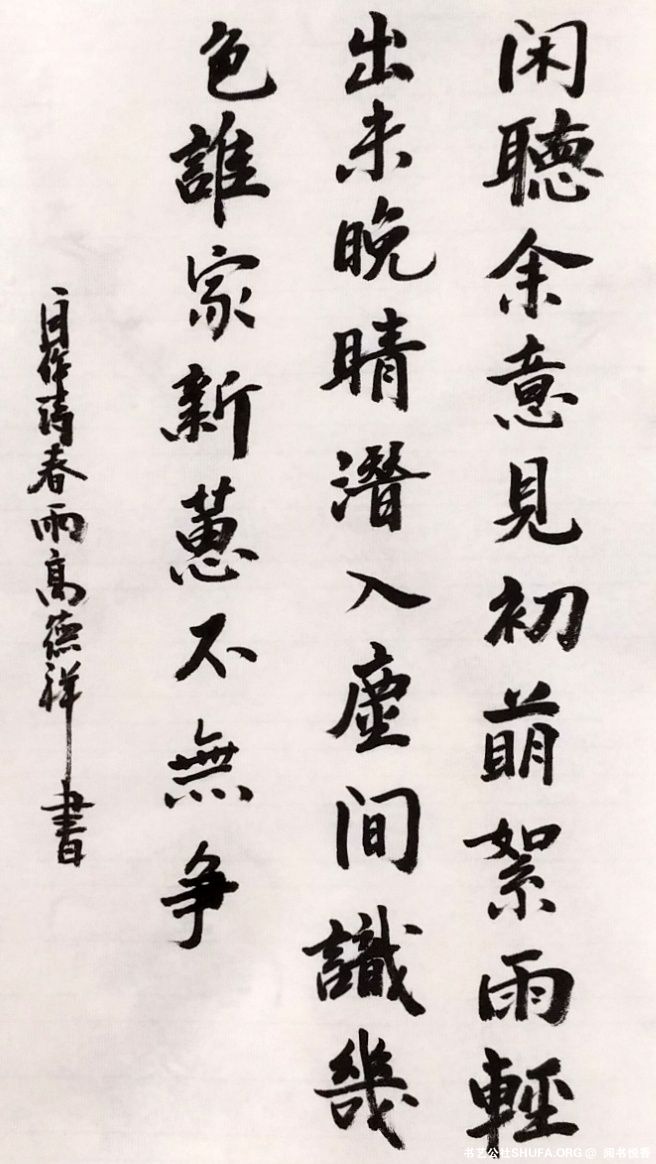 闲聽余意見初萌絮雨輕
出未晚晴潛入塵间識幾
色誰家新蔥不無争
自作诗春雨高德祥書
书艺公社SHUFA.ORG @ 闻书悦香